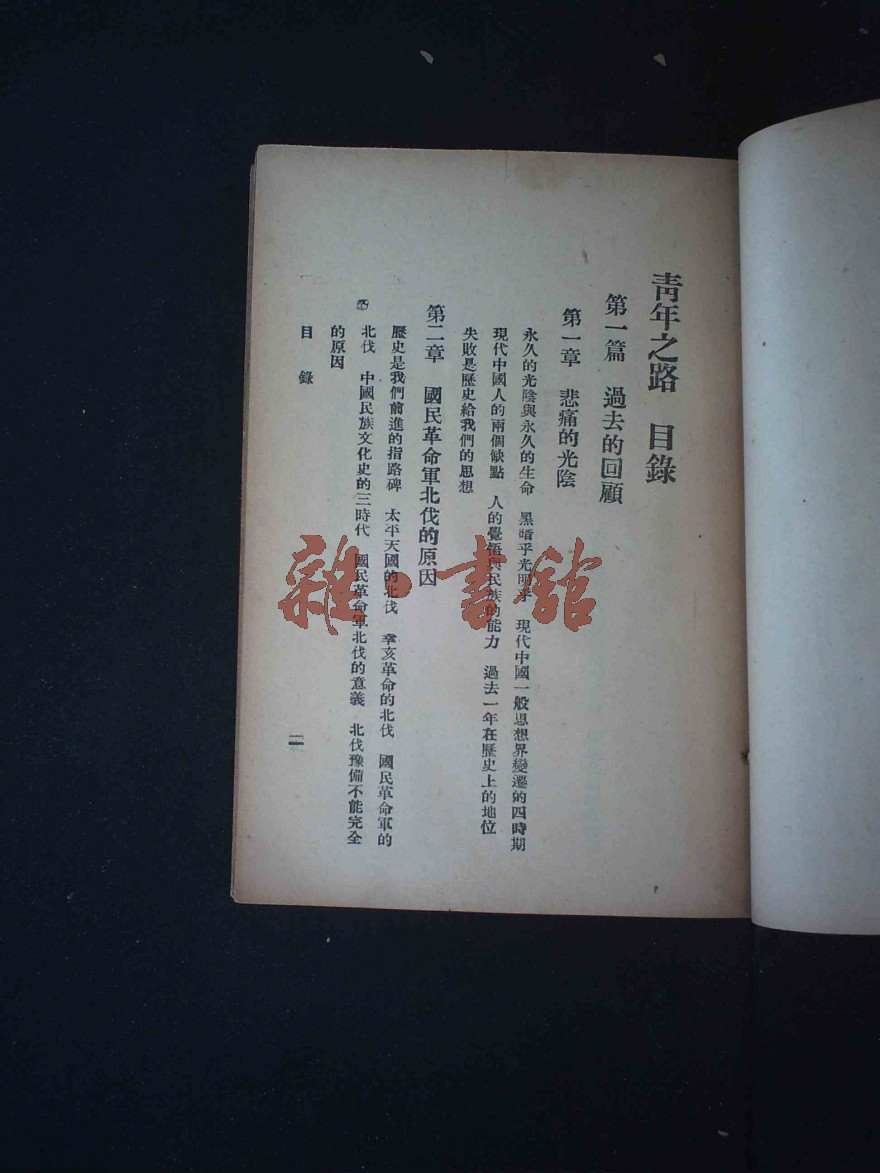 青年之路　目錄
第一篇　過去的回顧
第一章　悲痛的光陰
永久的光陰與永久的生命　黑暗乎光明乎　現代中國一般思想界變遷的四時期
現代中國人的兩個缺點　人的覺悟與民族的能力　過去一年在歷史上的地位
失敗是歷史給我們的思想
第二章　國民革命軍北伐的原因
歷史是我們前進的指路碑　太平天國的北伐　辛亥革命的北伐　國民革命軍的
北伐　中國民族文化史的三時代　國民革命軍北伐的意義　北伐豫備不能完全
的原因
目錄
一
雜·書館